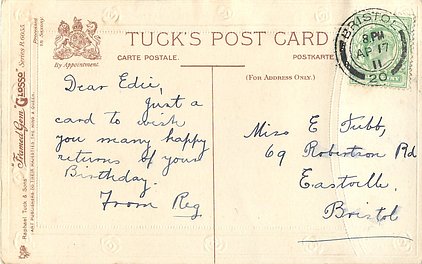 TUCK'S POST CARD
CARTE POSTALE.
POSTKARTE
By Appointment.
(FOR ADDRESS ONLY.)
BRISTOL
8 PM
AP 17
11
20
Dear Edie,
Just a
card to wish
you many happy
returns of your
Birthday.
From Reg
Miss E Tubb,
69 Robertson Rd
Eastville,
Bristol
Raphael Tuck & Sons' "Framed Gem "GLOSSO" Series
ART PUBLISHERS TO THEIR MAJESTIES THE KING & QUEEN.